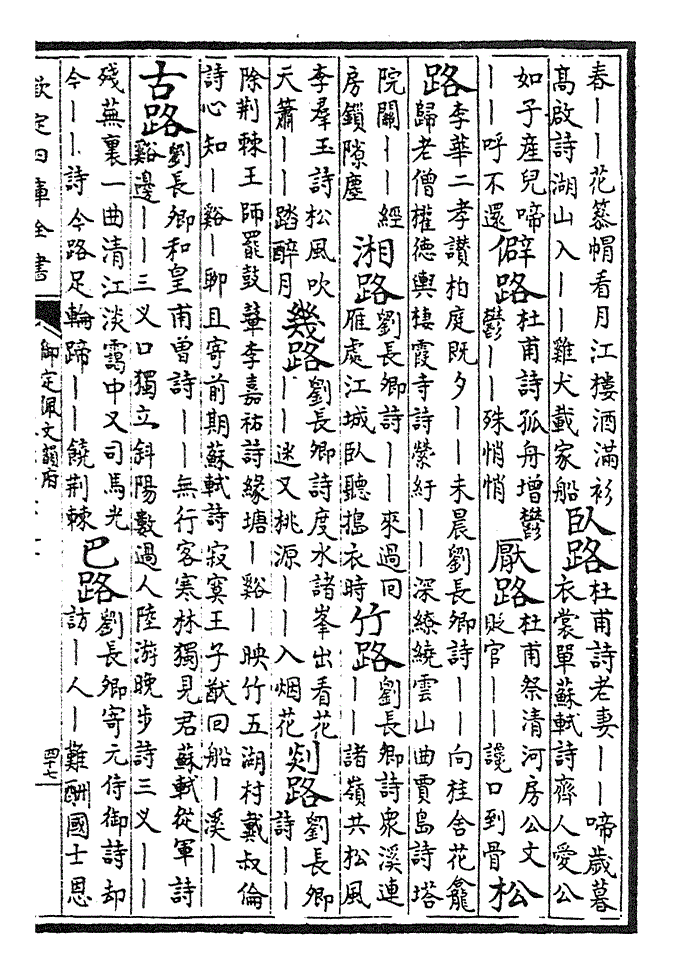 春——花暮帽看月江樓酒滿衫
高啟詩湖山入——雞犬載家船
卧路
杜甫詩老妻——啼歲暮
衣裳單蘇軾詩齊人愛公
如子産兒啼
——呼不還
僻路
杜甫詩孤舟增鬱
鬱——殊悄悄
厭路
杜甫祭清河房公文
貶官——讒口到骨
松
路
李華二孝讚柏庭既夕——未晨劉長卿詩——向桂舍花龕
歸老僧權德輿棲霞寺詩縈紆——深繚繞雲山曲賈島詩塔
院關——經
房鎖隙塵
湘路
劉長卿詩——來過回
雁處江城卧聽搗衣時
竹路
劉長卿詩衆溪連
——諸嶺共松風
李羣玉詩松風吹
天簫——踏醉月
幾路
劉長卿詩度水諸峯出看花
——迷又桃源——入烟花
剡路
劉長卿
詩——
除荆棘王師罷鼓鼙李嘉祐詩緣塘—谿—映竹五湖村戴叔倫
詩心知—谿—聊且寄前期蘇軾詩寂寞王子猷回船—溪—
古路
劉長卿和皇甫曾詩——無行客寒林獨見君蘇軾從軍詩
谿邊——三叉口獨立斜陽數過人陸游晚步詩三叉——
殘蕪裏一曲清江淡靄中又司馬光
今——詩今路足輪蹄——饒荆棘
巴路
劉長卿寄元侍御詩却
訪—人—難酬國士恩
欽定四庫全書
御定佩文韻府
四十七